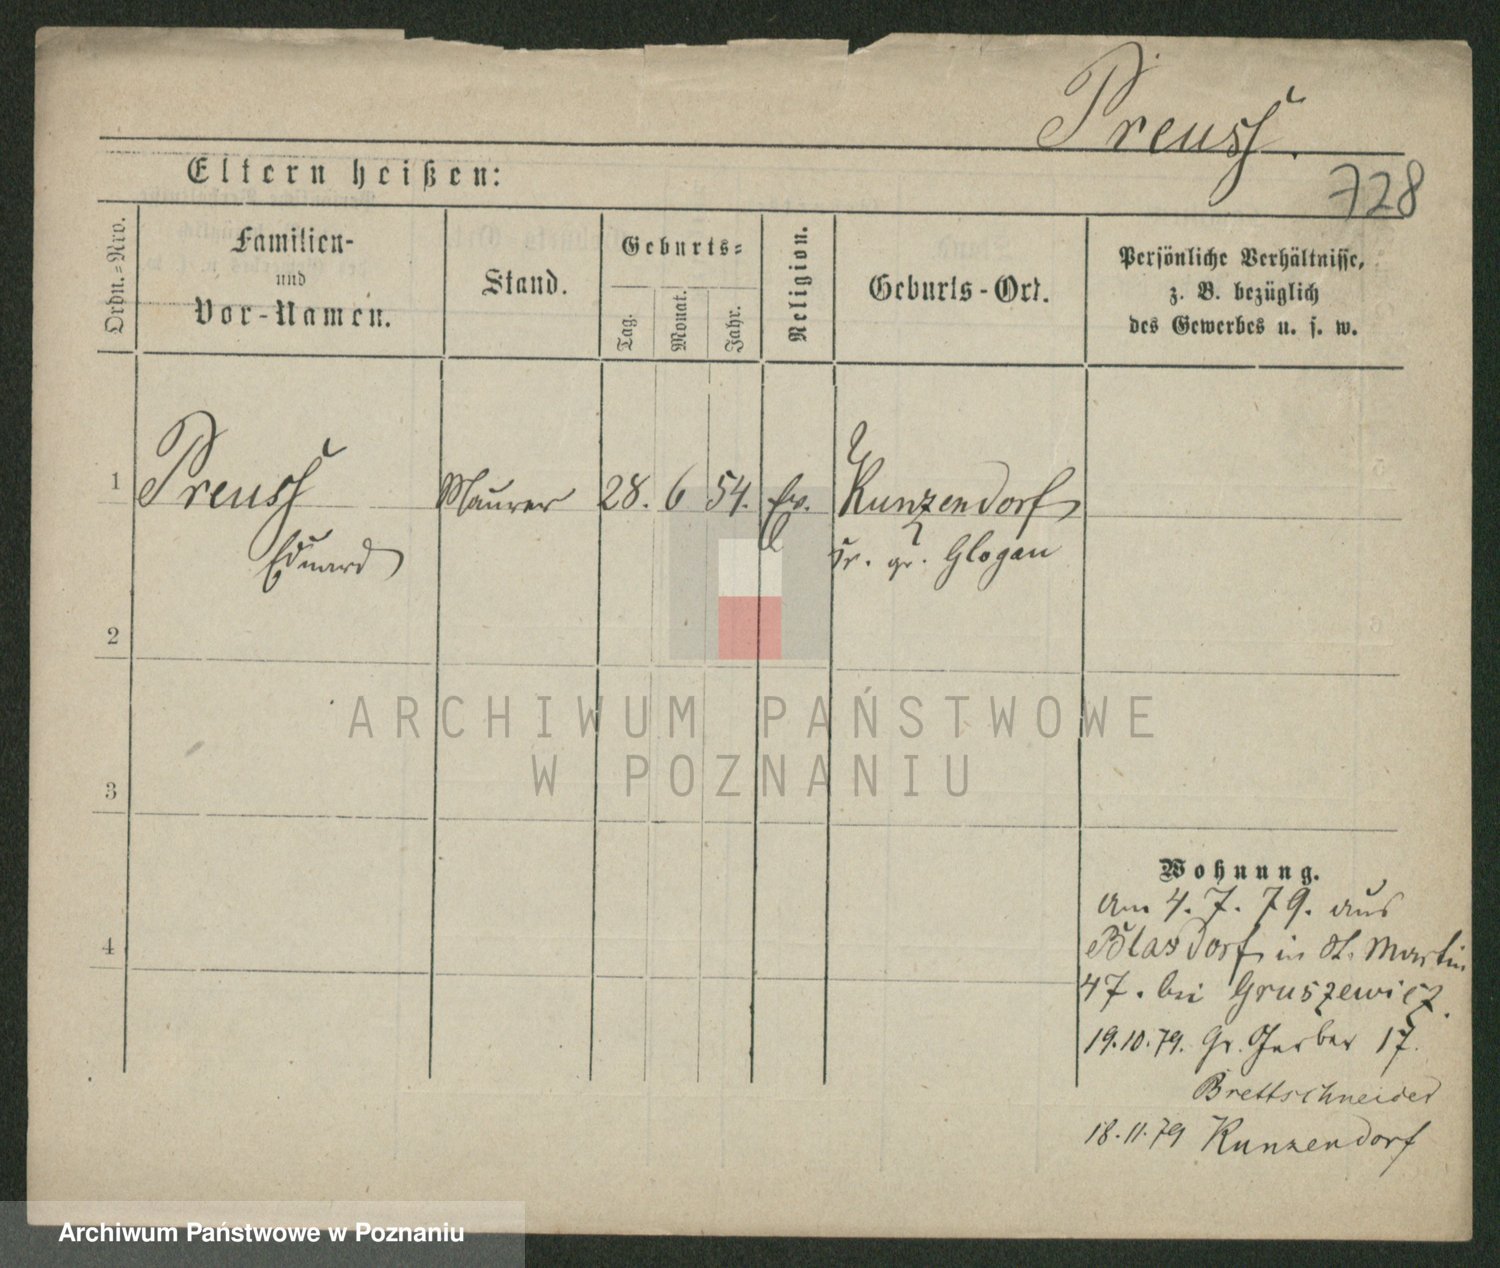 Preuss.
728
Eltern heißen:
Ordn.=Nro.
Familien-
und
Vor-Namen.
Stand.
Geburts=
Tag.
Monat.
Jahr.
Religion.
Geburts-Ort.
Persönliche Verhältnisse,
z. B. bezüglich
des Gewerbes u. s. w.
1 Preuss Maurer 28. 6 54. Ev. Kunzendorf
Eduard Kr. gr. Glogau
2
3
4
Wohnung.
Am 4. 7. 79. aus
Blasdorf in St. Martin
47. bei Gruszewicz.
19.10.79. Gr. Gerber 17.
Brettschneider
18.11.79 Kunzendorf
ARCHIWUM PAŃSTWOWE
W POZNANIU
Archiwum Państwowe w Poznaniu